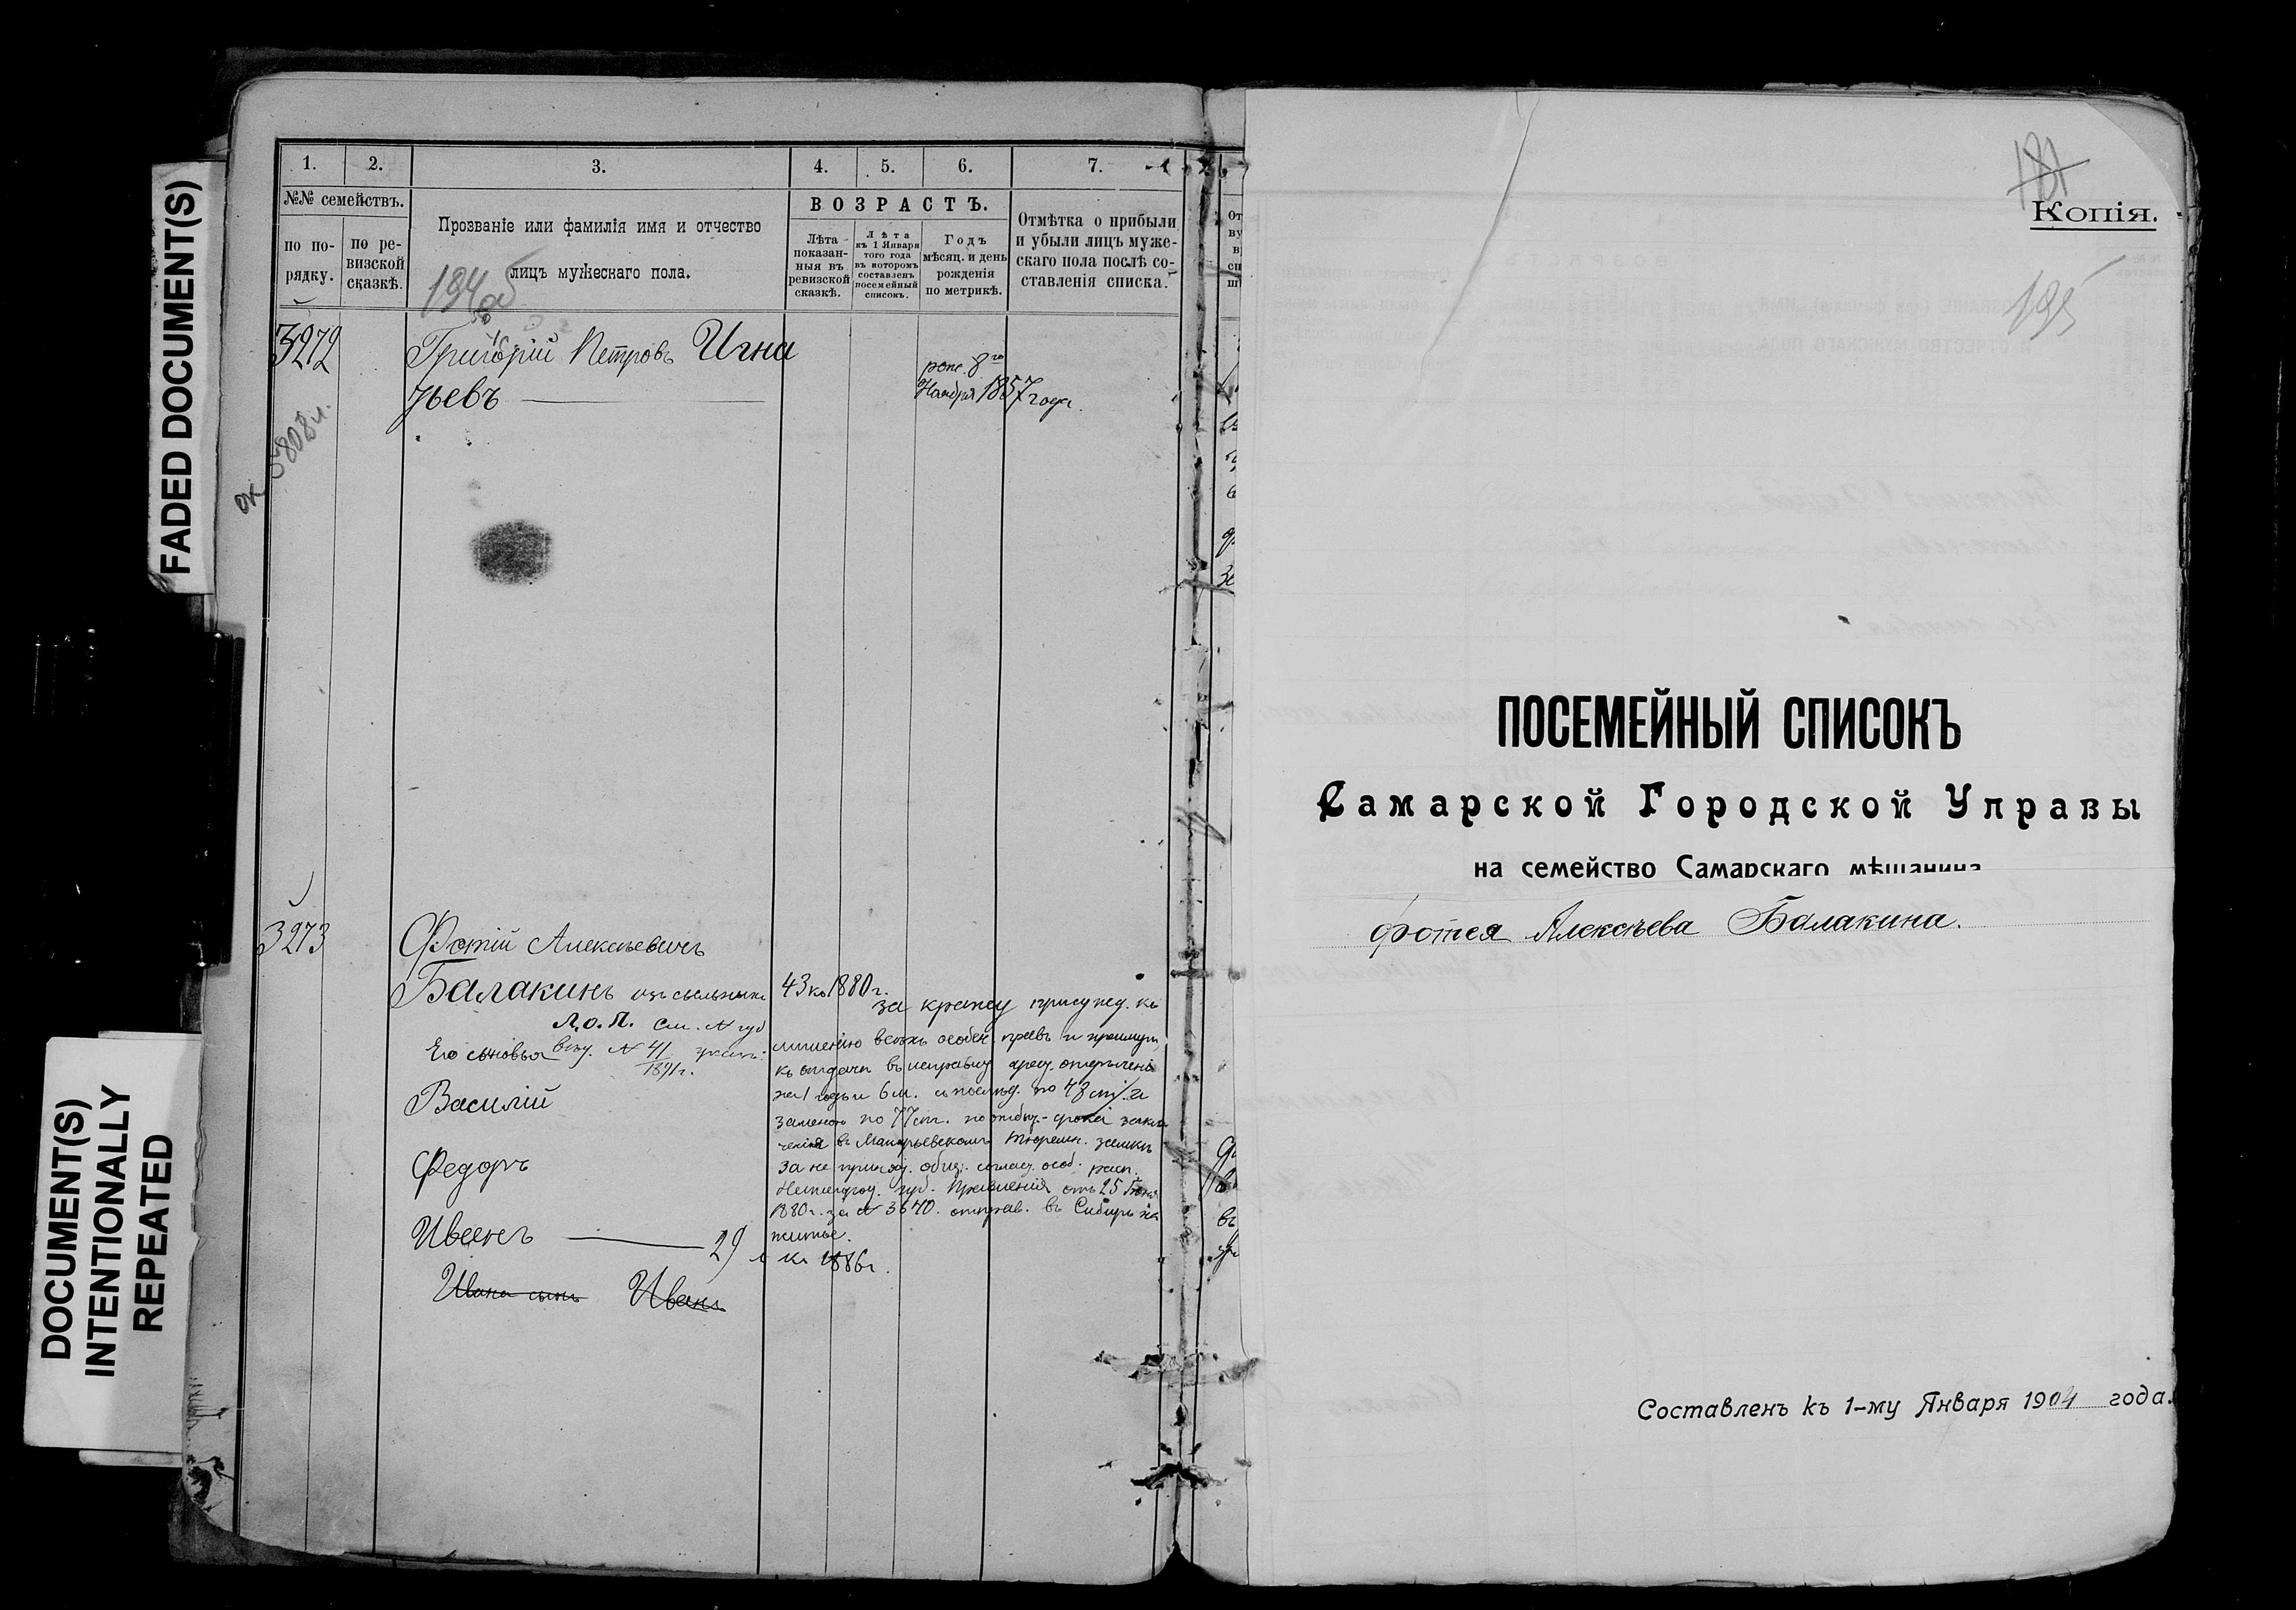 FADED DOCUMENT(S)
DOCUMENT(S)
INTENTIONALLY
REPEATED
1.
2.
3.
4.
5.
6.
7.
№№ семействъ.
по по-
рядку.
по ре-
визской
сказкѣ.
Прозваніе или фамилія имя и отчество
лицъ мужескаго пола.
194 об
ВОЗРАСТЪ.
Лѣта
показан-
ныя въ
ревизской
сказкѣ.
Лѣта
къ 1 Января
того года
въ которомъ
составленъ
посемейный
списокъ.
Годъ
мѣсяц. и день
рожденія
по метрикѣ.
Отмѣтка о прибыли
и убыли лицъ муже-
скаго пола послѣ со-
ставленія списка.
3272
Григорій Петровъ Игна
тьевъ
рож. 8го
Ноября 1857 года.
3273
Фотій Алексѣевичъ
Балакинъ
43 къ 1880 г.
Л.О.П. См.
Его сыновья
№ 41
1891 г.
Василій
Федоръ
Иванъ 29 л къ 1886 г.
Ивана сынъ Иванъ
за кражу присужд. къ
лишенію всѣхъ особен. правъ и преимущ.
къ отдачи въ исправ. арест. отдѣленіе
на 1 годъ и 6 м.
заменою по 77 ст. по отбыт. срока заклю
ченія въ Макарьевскомъ тюремн. замкѣ
за не принят. общ. соглас. особ. расп.
губ. Правленія отъ 25 Іюня
1880 г. за № 3640. отправ. въ Сибирь на
житье.
Копія.
181
195
ПОСЕМЕЙНЫЙ СПИСОКЪ
Самарской Городской Управы
на семейство Самарскаго мѣщанина
Фотея Алексѣева Балакина.
Составленъ къ 1-му Января 1904 года.